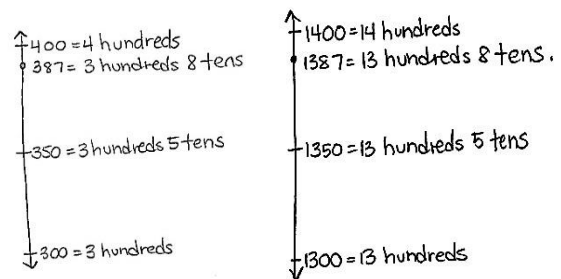 400 = 4 hundreds
387 = 3 hundreds 8 tens
350 = 3 hundreds 5 tens
300 = 3 hundreds
1400 = 14 hundreds
1387 = 13 hundreds 8 tens.
1350 = 13 hundreds 5 tens
1300 = 13 hundreds